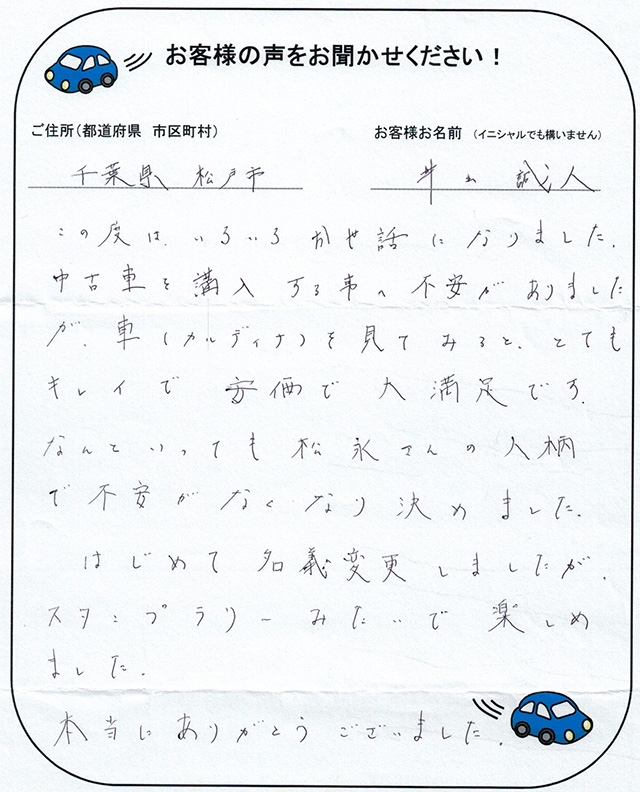 お客様の声をお聞かせください！
ご住所（都道府県　市区町村）　お客様お名前（イニシャルでも構いません）
千葉県　松戸市　井出　誠人
この度は、いろいろお世話になりました。
中古車を購入する事へ不安がありました
が、車（カルディナ）を見てみると、とても
キレイで安価で大満足です。
なんといっても松永さんの人柄
で不安がなくなり決めました。
はじめて名義変更しましたが、
スタンプラリーみたいで楽しめ
ました。
本当にありがとうございました。